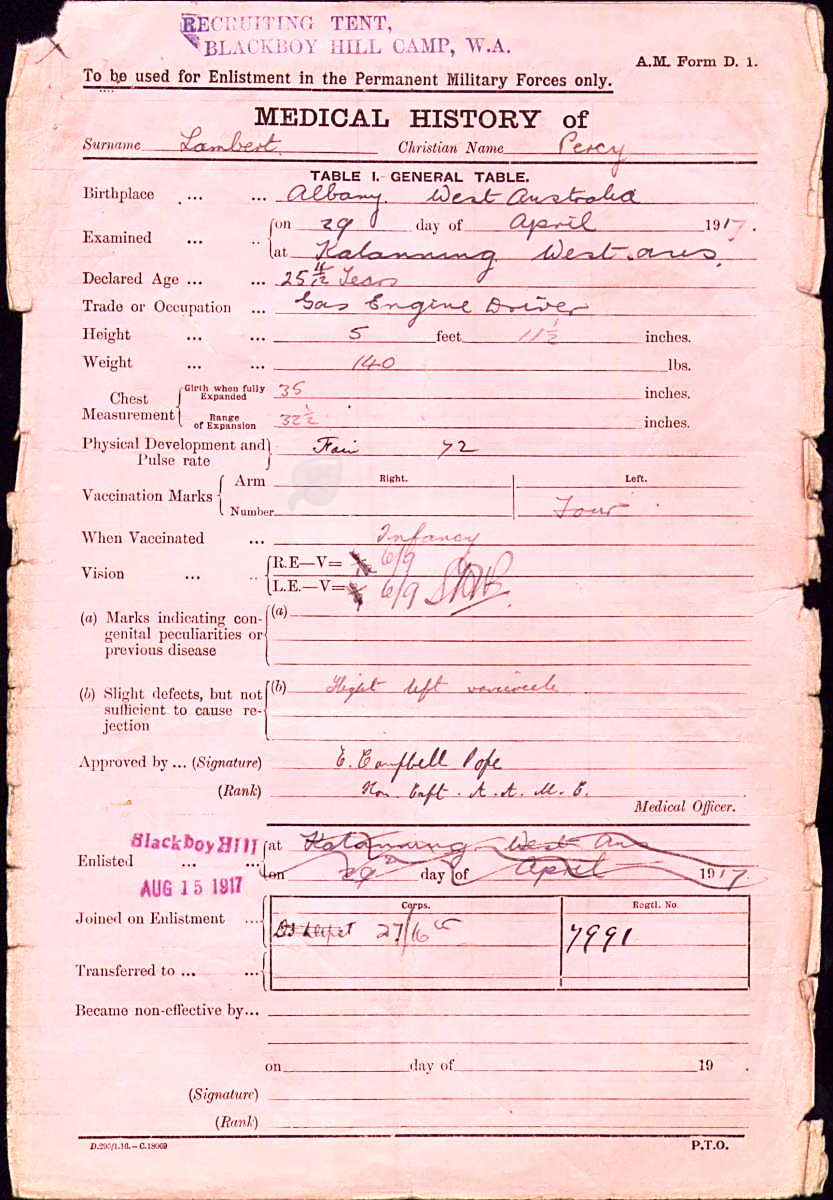 RECRUITING TENT,
BLACKBOY HILL CAMP, W.A.
A.M. Form D. 1.
To be used for Enlistment in the Permanent Military Forces only.
MEDICAL HISTORY of
Surname Lambert Christian Name Percy
TABLE I.- GENERAL TABLE.
Birthplace ... ... Albany. West Australia
Examined ... .. on 29 day of April 1917.
at Katanning West. Aus.
Declared Age ... ... 25 4/12 Years
Trade or Occupation ... Gas Engine Driver
Height ... ... 5 feet 11 1/2 inches.
Weight ... ... 140 lbs.
Chest Measurement Girth when fully Expanded 35 inches.
Range of Expansion 32 1/2 inches.
Physical Development and Pulse rate Fair 72
Vaccination Marks Arm Right. Left.
Number Four
When Vaccinated ... Infancy
Vision ... .. R.E—V= 6/9
L.E.—V= 6/9
(a) Marks indicating con-
genital peculiarities or
previous disease
(a)
(b) Slight defects, but not
sufficient to cause re-
jection
(b) Slight left varicocele
Approved by ... (Signature) E. Campbell Pope
(Rank) Hon. Capt. A. A. M. C.
Medical Officer.
Blackboy Hill
Enlisted ... ... at Katanning West Aus
on 29 day of April 1917.
AUG 15 1917
Corps. Regtl. No
Joined on Enlistment ... Depot 27/16 7991
Transferred to ... ...
Became non-effective by...
on day of 19 .
(Signature)
(Rank)
D.290/1.16.—C.18069
P.T.O.